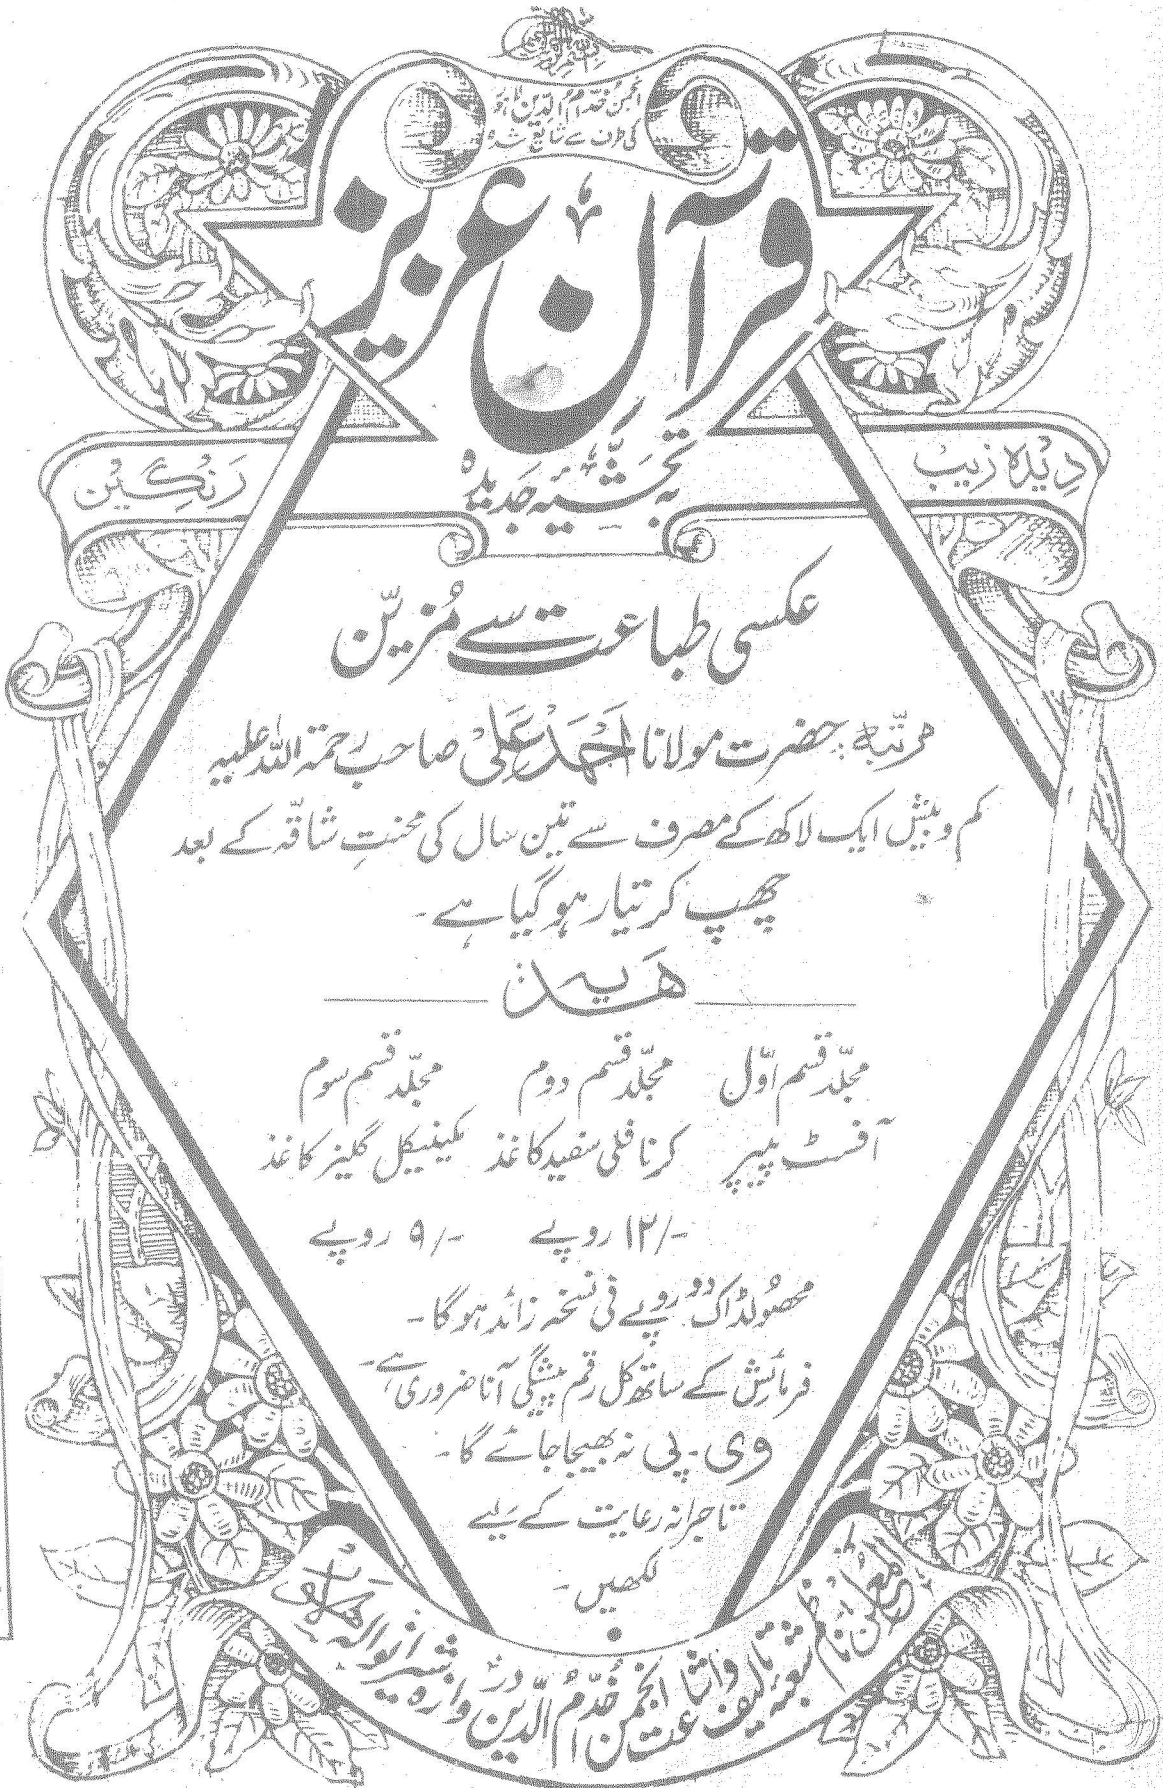 انجمن خدّام الدین لاہور
کی طرف سے شائع شدہ
قرآن عزیز
دیدہ زیب
رنگین
بہ تحشیہ جدیدہ
عکسی طباعت سے مُزیّن
مرتّبہ: حضرت مولانا اَحمَد عَلیْ صاحب رحمۃ اللہ علیہ
کم و بیش ایک لاکھ کے مصرف سے تین سال کی محنتِ شاقّہ کے بعد
چھپ کر تیار ہو گیا ہے۔
ھَدیہ
مجلّد قسم اوّل مجلّد قسم دوم مجلّد قسم سوم
آفسٹ پیپر کرنافلی سفید کاغذ مکینیکل گلیز کاغذ
۱۲/- روپے ۹/- روپے
محصُولڈاک دو روپے فی نسخہ زائد ہوگا۔
فرمائش کے ساتھ کل رقم پیشگی آنا ضروری ہے۔
وی۔ پی نہ بھیجا جائے گا۔
تاجرانہ رعایت کے لیے
لکھیں۔
المعلن ناظم شعبہ تالیف و اشاعت انجمن خدّام الدّین دروازہ شیرانوالہ